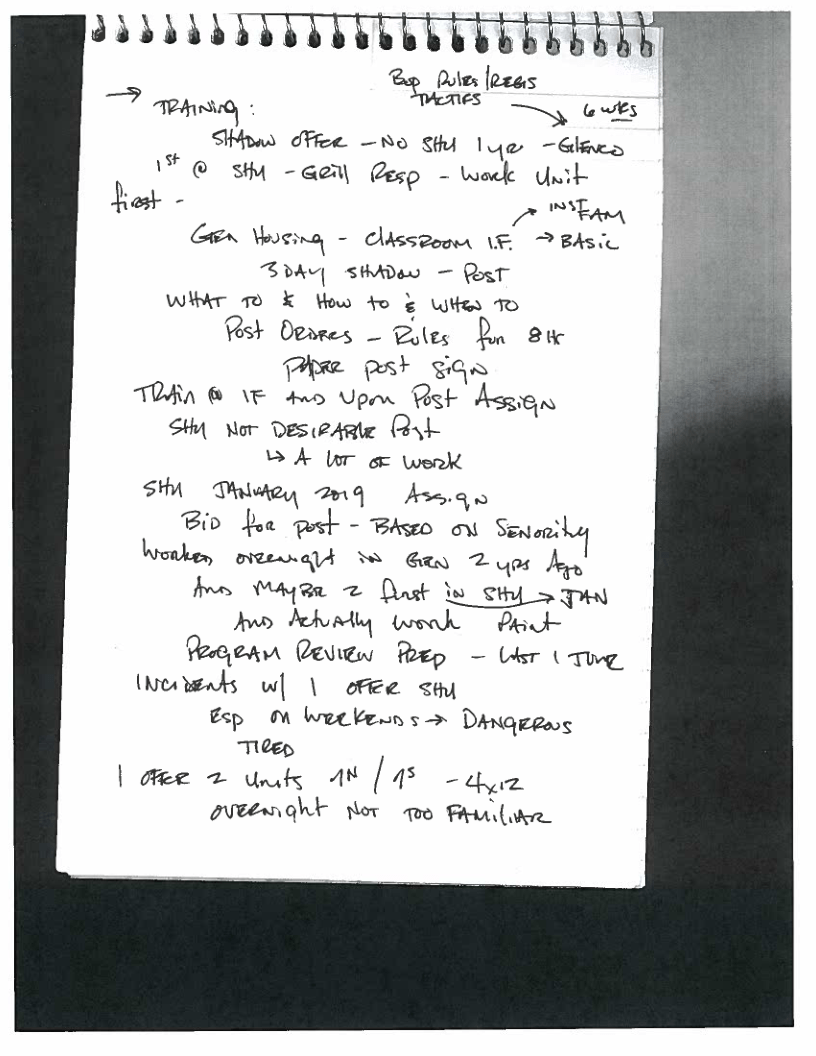 BOP Rules/REGS
TACTICS → 6 WKS
→ TRAINING:
SHADOW OFFCR – NO SHU 1 yr – GLENCO
1st @ SHU – GRill RESP – WORK UNIT
first –
INST FAM
GEN HOUSING – CLASSROOM I.F. → BASIC
3 DAY SHADOW – POST
WHAT TO & HOW TO & WHEN TO
POST ORDERS – RULES for 8 HR
PAPER POST SIGN
TRAIN @ IF AND UPON POST ASSIGN
SHU NOT DESIRABLE POST
↳ A LOT OF WORK
SHU JANUARY 2019 ASSIGN
BID for post – BASED ON SENORITY
WORKED OVERNIGHT IN GEN 2 YRS AGO
AND MAYBE 2 first in SHU → JAN
AND Actually work PAINT
PROGRAM REVIEW PREP – LAST 1 JUNE
INCIDENTS w/ 1 OFFER SHU
ESP ON WEEKENDS → DANGEROUS
TIRED
1 OFFCR 2 UNITS 9N / 9S – 4x12
OVERNIGHT NOT TOO FAMILIAR